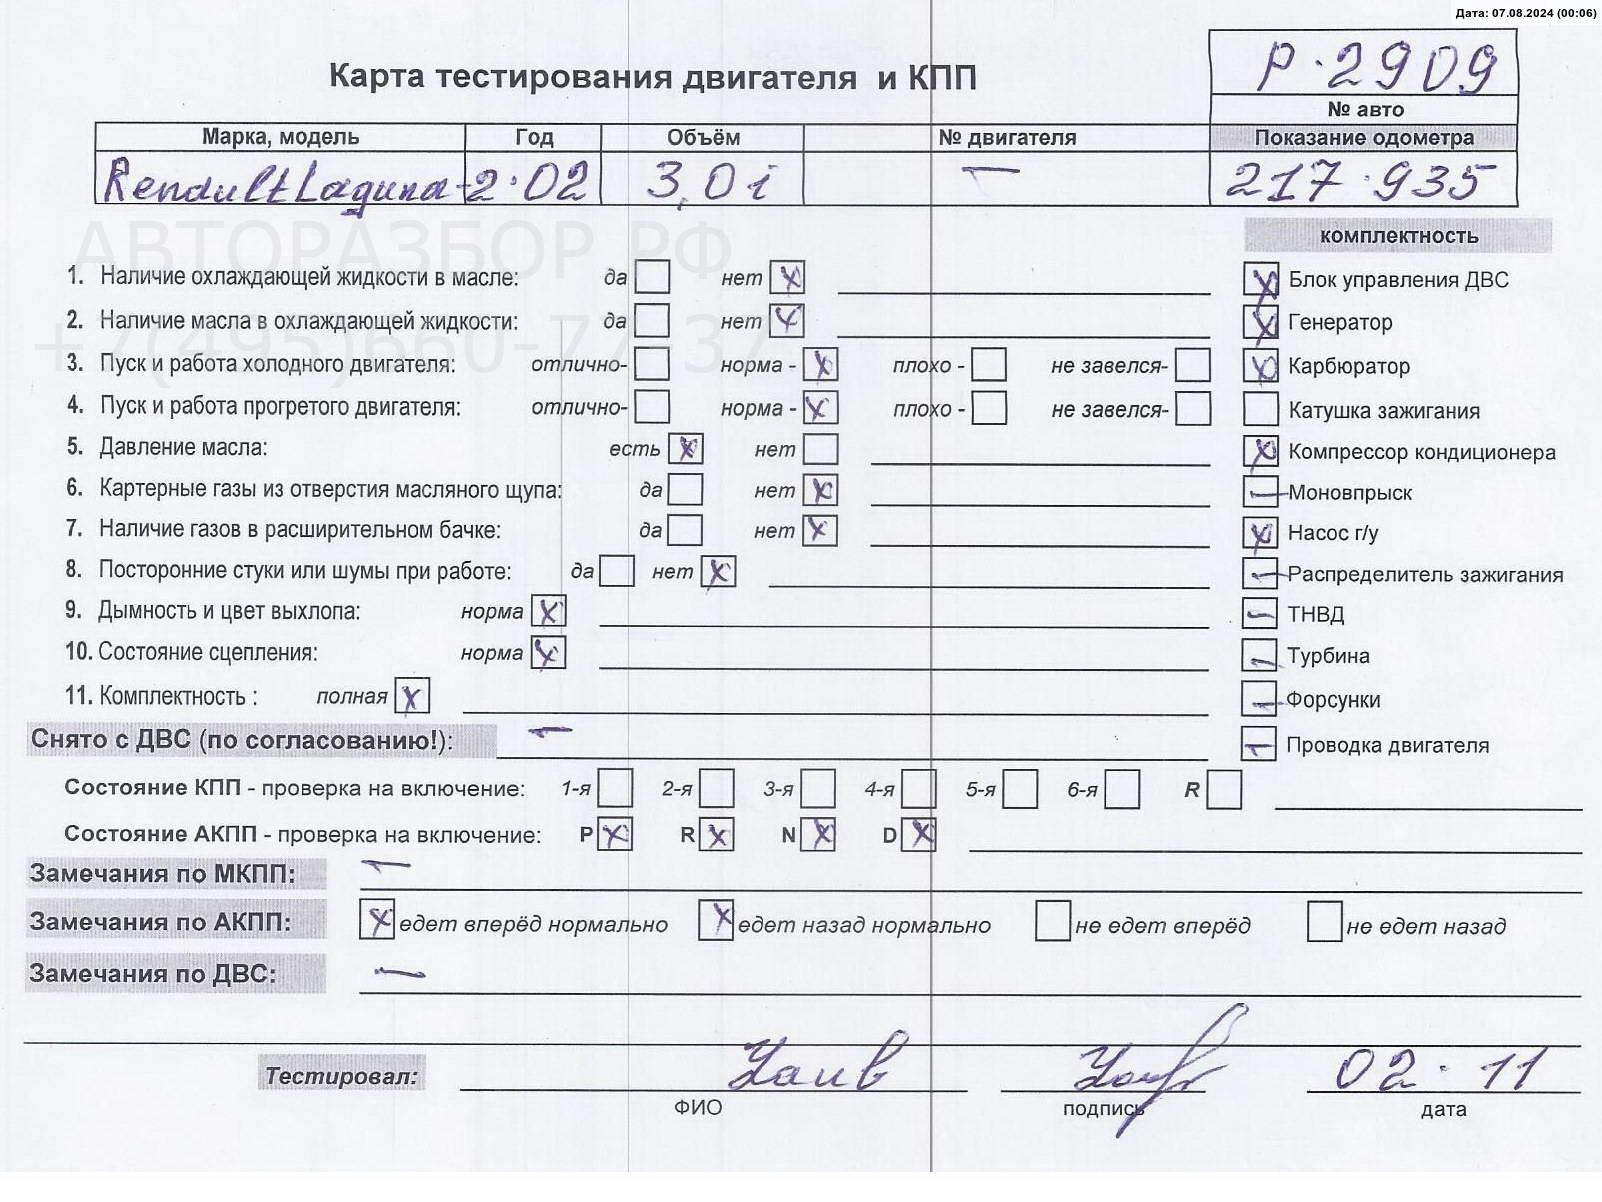 Дата: 07.08.2024 (00:06)
Карта тестирования двигателя и КПП
Р·2909
№ авто
Марка, модель Год Объём № двигателя Показание одометра
Renault Laguna-2·02 3,0i — 217·935
АВТОРАЗБОР.РФ
+7(495)660-77-37
комплектность
1. Наличие охлаждающей жидкости в масле: да нет X
X Блок управления ДВС
2. Наличие масла в охлаждающей жидкости: да нет X
X Генератор
3. Пуск и работа холодного двигателя: отлично- норма - X плохо - не завелся-
X Карбюратор
4. Пуск и работа прогретого двигателя: отлично- норма - X плохо - не завелся-
Катушка зажигания
5. Давление масла: есть X нет
X Компрессор кондиционера
6. Картерные газы из отверстия масляного щупа: да нет X
— Моновпрыск
7. Наличие газов в расширительном бачке: да нет X
X Насос г/у
8. Посторонние стуки или шумы при работе: да нет X
— Распределитель зажигания
9. Дымность и цвет выхлопа: норма X
— ТНВД
10. Состояние сцепления: норма X
— Турбина
11. Комплектность : полная X
— Форсунки
Снято с ДВС (по согласованию!): —
— Проводка двигателя
Состояние КПП - проверка на включение: 1-я 2-я 3-я 4-я 5-я 6-я R
Состояние АКПП - проверка на включение: P X R X N X D X
Замечания по МКПП: —
Замечания по АКПП: X едет вперёд нормально X едет назад нормально не едет вперёд не едет назад
Замечания по ДВС: —
Тестировал: 02·11
ФИО подпись дата